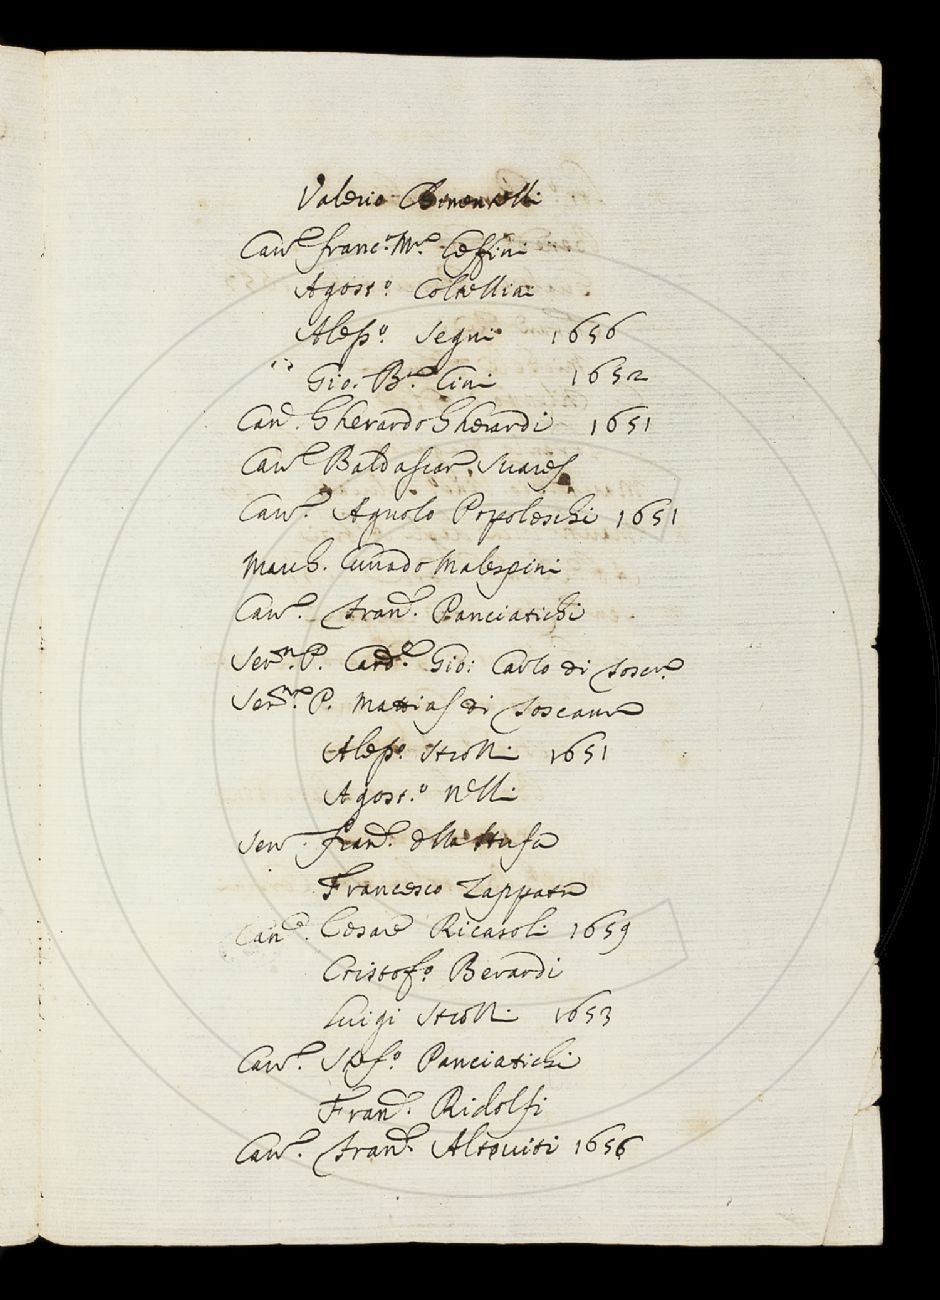 Valerio
Cav.re Franc.o M.a Ceffini
Agost.o Coltellini
Aless.o Segni 1656
Gio. B.a Cini 1652
Can.co Gherardo Gherardi 1651
Cav.re Baldassar Suares
Cav.re Agnolo Popoleschi 1651
March. Currado Malespini
Cav.re Fran.co Panciatichi
Ser.mo P. Card.le Gio: Carlo di Tosc.na
Ser.mo P. Mattias di Toscana
Aless.o Strozzi 1651
Agost.o Nelli
Sen.re Fran.co della Stufa
Francesco Zappata
Can.co Cesare Ricasoli 1659
Cristof.o Berardi
Luigi Strozzi 1653
Cav.re Stef.o Panciatichi
Fran.co Ridolfi
Cav.re Fran.co Altoviti 1656